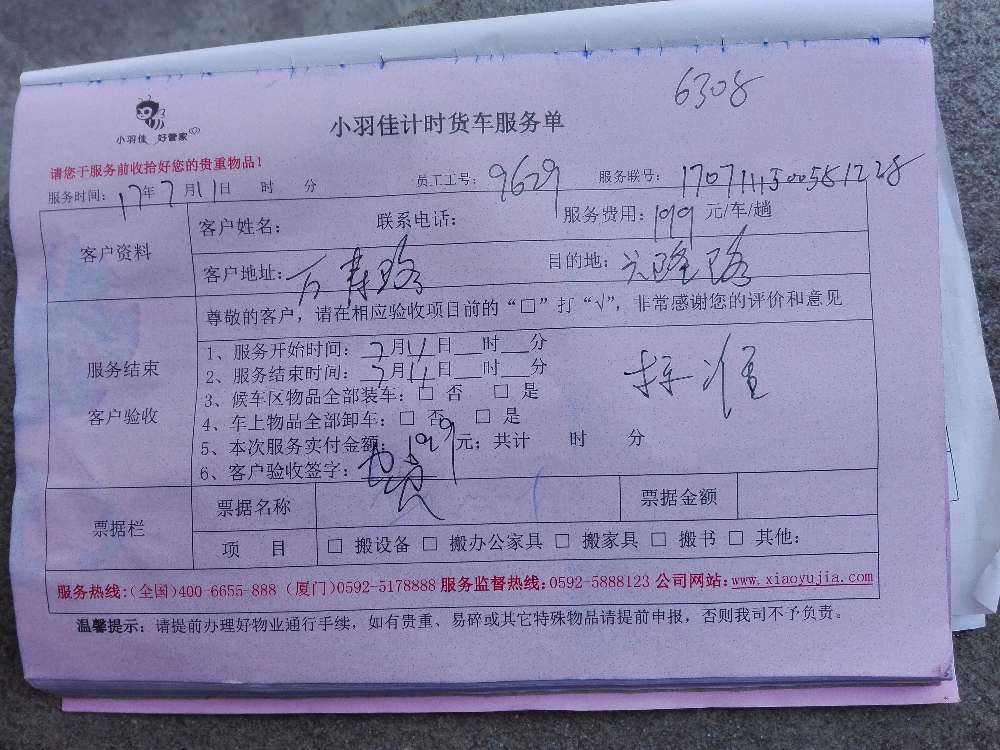 6308
小羽佳 好管家
小羽佳计时货车服务单
请您于服务前收拾好您的贵重物品!
服务时间: 17年7月11日 时 分 员工工号: 9629 服务联号:
客户资料 客户姓名: 联系电话: 服务费用: 199 元/车/趟
客户地址: 万寿路 目的地: 兴隆路
尊敬的客户，请在相应验收项目前的“□”打“√”，非常感谢您的评价和意见
服务结束
客户验收
1、服务开始时间: 7月11日___时___分
2、服务结束时间: 7月11日___时___分
3、候车区物品全部装车: □ 否 □ 是
4、车上物品全部卸车: □ 否 □ 是
5、本次服务实付金额: 199元; 共计 时 分
6、客户验收签字:
票据栏 票据名称 票据金额
项 目 □ 搬设备 □ 搬办公家具 □ 搬家具 □ 搬书 □ 其他:
服务热线:(全国)400-6655-888 (厦门)0592-5178888 服务监督热线:0592-5888123 公司网站:www.xiaoyujia.com
温馨提示: 请提前办理好物业通行手续，如有贵重、易碎或其它特殊物品请提前申报，否则我司不予负责。